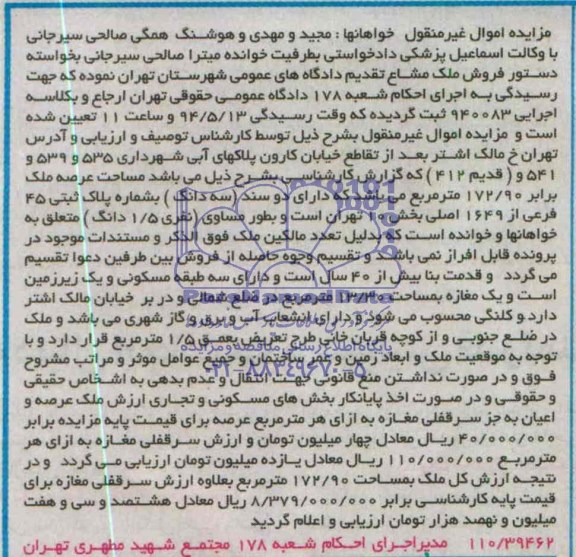 مزایده اموال غیرمنقول خواهانها : مجید و مهدی و هوشنگ همگی صالحی سیرجانی
با وکالت اسماعیل پزشکی دادخواستی بطرفیت خوانده میترا صالحی سیرجانی بخواسته
دستور فروش ملک مشاع تقدیم دادگاه های عمومی شهرستان تهران نموده که جهت
رسیدگی به اجرای احکام شعبه ۱۷۸ دادگاه عمومی حقوقی تهران ارجاع و بکلاسه
اجرایی ۹۴۰۰۸۳ ثبت گردیده که وقت رسیدگی ۹۴/۵/۱۳ و ساعت ۱۱ تعیین شده
است و مزایده اموال غیرمنقول بشرح ذیل توسط کارشناس توصیف و ارزیابی و آدرس
تهران خ مالک اشتر بعد از تقاطع خیابان کارون پلاکهای آبی شهرداری ۵۳۵ و ۵۳۹ و
۵۴۱ و ( قدیم ۴۱۲ ) که گزارش کارشناسی بشرح ذیل می باشد مساحت عرصه ملک
برابر ۱۷۲/۹۰ مترمربع می باشد که دارای دو سند ( سه دانگ ) بشماره پلاک ثبتی ۴۵
فرعی از ۱۶۴۹ اصلی بخش تهران است و بطور مساوی (نفری ۱/۵ دانگ ) متعلق به
خواهانها و خوانده است که بدلیل تعدد مالکین ملک فوق الذکر و مستندات موجود در
پرونده قابل افراز نمی باشد و تقسیم وجوه حاصله از فروش بین طرفین دعوا تقسیم
می گردد و قدمت بنا بیش از ۴۰ سال است و دارای سه طبقه مسکونی و یک زیرزمین
است و یک مغازه بمساحت مترمربع در ضلع شمالی و در بر خیابان مالک اشتر
دارد و کلنگی محسوب می شود و دارای انشعاب آب و برق و گاز شهری می باشد و ملک
در ضلع جنوبی و از کوچه قربان خانی طرح تعریض بعمق ۱/۵ مترمربع قرار دارد و با
توجه به موقعیت ملک و ابعاد زمین و عمر ساختمان و جمیع عوامل موثر و مراتب مشروح
فوق و در صورت نداشتن منع قانونی جهت انتقال و عدم بدهی به اشخاص حقیقی
و حقوقی و در صورت اخذ پایانکار بخش های مسکونی و تجاری ارزش ملک عرصه و
اعیان به جز سرقفلی مغازه به ازای هر مترمربع عرصه برای قیمت پایه مزایده برابر
۴۰/۰۰۰/۰۰۰ ریال معادل چهار میلیون تومان و ارزش سرقفلی مغازه به ازای هر
مترمربع ۱۱۰/۰۰۰/۰۰۰ ریال معادل یازده میلیون تومان ارزیابی می گردد و در
نتیجه ارزش کل ملک بمساحت ۱۷۲/۹۰ مترمربع بعلاوه ارزش سرقفلی مغازه برای
قیمت پایه کارشناسی برابر ۸/۳۷۹/۰۰۰/۰۰۰ ریال معادل هشتصد و سی و هفت
میلیون و نهصد هزار تومان ارزیابی و اعلام گردید
۱۱۰/۳۹۴۶۲ مدیراجرای احکام شعبه ۱۷۸ مجتمع شهید مطهری تهران
۰۲۱-۸۸۳۴۹۶۷۰-۵